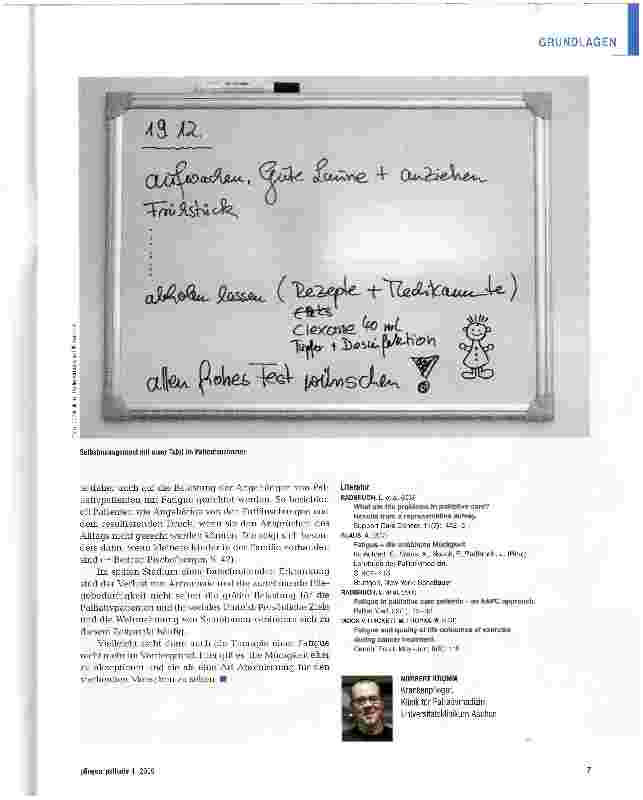 GRUNDLAGEN
19.12.
aufwachen, Gute Laune + anziehen
Frühstück
abholen lassen (Rezepte + Medikamente)
Clexane 40 mL
Tupfer + Desinfektion
allen frohes Fest wünschen
Selbstmanagement mit einer Tafel im Patientenzimmer
auch auf die Belastung der Angehörigen von Pal-
liativpatienten mit Fatigue gerichtet werden. So berichten
oft Patienten wie Angehörige von den Enttäuschungen und
dem resultierenden Druck, wenn sie den Ansprüchen des
Alltags nicht gerecht werden können. Das zeigt sich beson-
ders dann, wenn kleinere Kinder in der Familie vorhanden
sind
Im späten Stadium einer fortschreitenden Erkrankung
sind der Verlust von Autonomie und die zunehmende Pfle-
gebedürftigkeit nicht selten die größte Belastung für die
Palliativpatienten und ihr soziales Umfeld. Persönliche Ziele
und die Wahrnehmung von Symptomen verändern sich zu
diesem Zeitpunkt häufig.
Vielleicht steht dann auch die Therapie einer Fatigue
nicht mehr im Vordergrund. Hier gilt es, die Müdigkeit eher
zu akzeptieren und sie als eine Art Abschirmung für den
sterbenden Menschen zu sehen.
Literatur
RADBRUCH, L. et al.
What are the problems in palliative care?
Results from a representative survey.
Support Care Cancer
Fatigue – die unübliche Müdigkeit
Lehrbuch der Palliativmedizin.
Stuttgart, New York: Schattauer
RADBRUCH, L. et al.
Fatigue in palliative care patients – an EAPC approach.
Palliat Med
Fatigue and quality of life outcomes of exercise
during cancer treatment.
Cancer Pract
NORBERT KRUMM
Krankenpfleger,
Klinik für Palliativmedizin
Universitätsklinikum Aachen
7